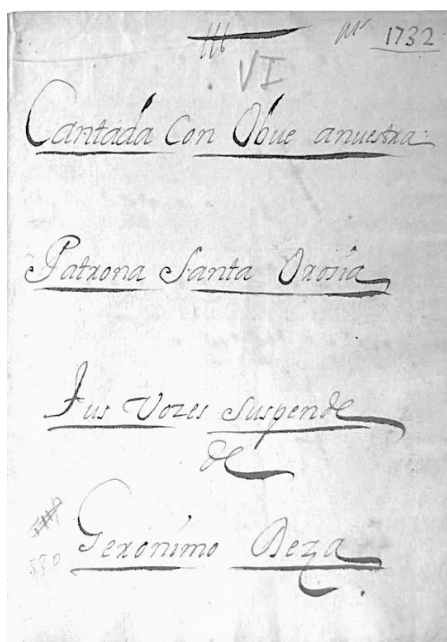 1732
VI
Cantada Con Obue anuestra
Patrona Santa Orosia
Sus Vozes Suspende
de
Geronimo Deza